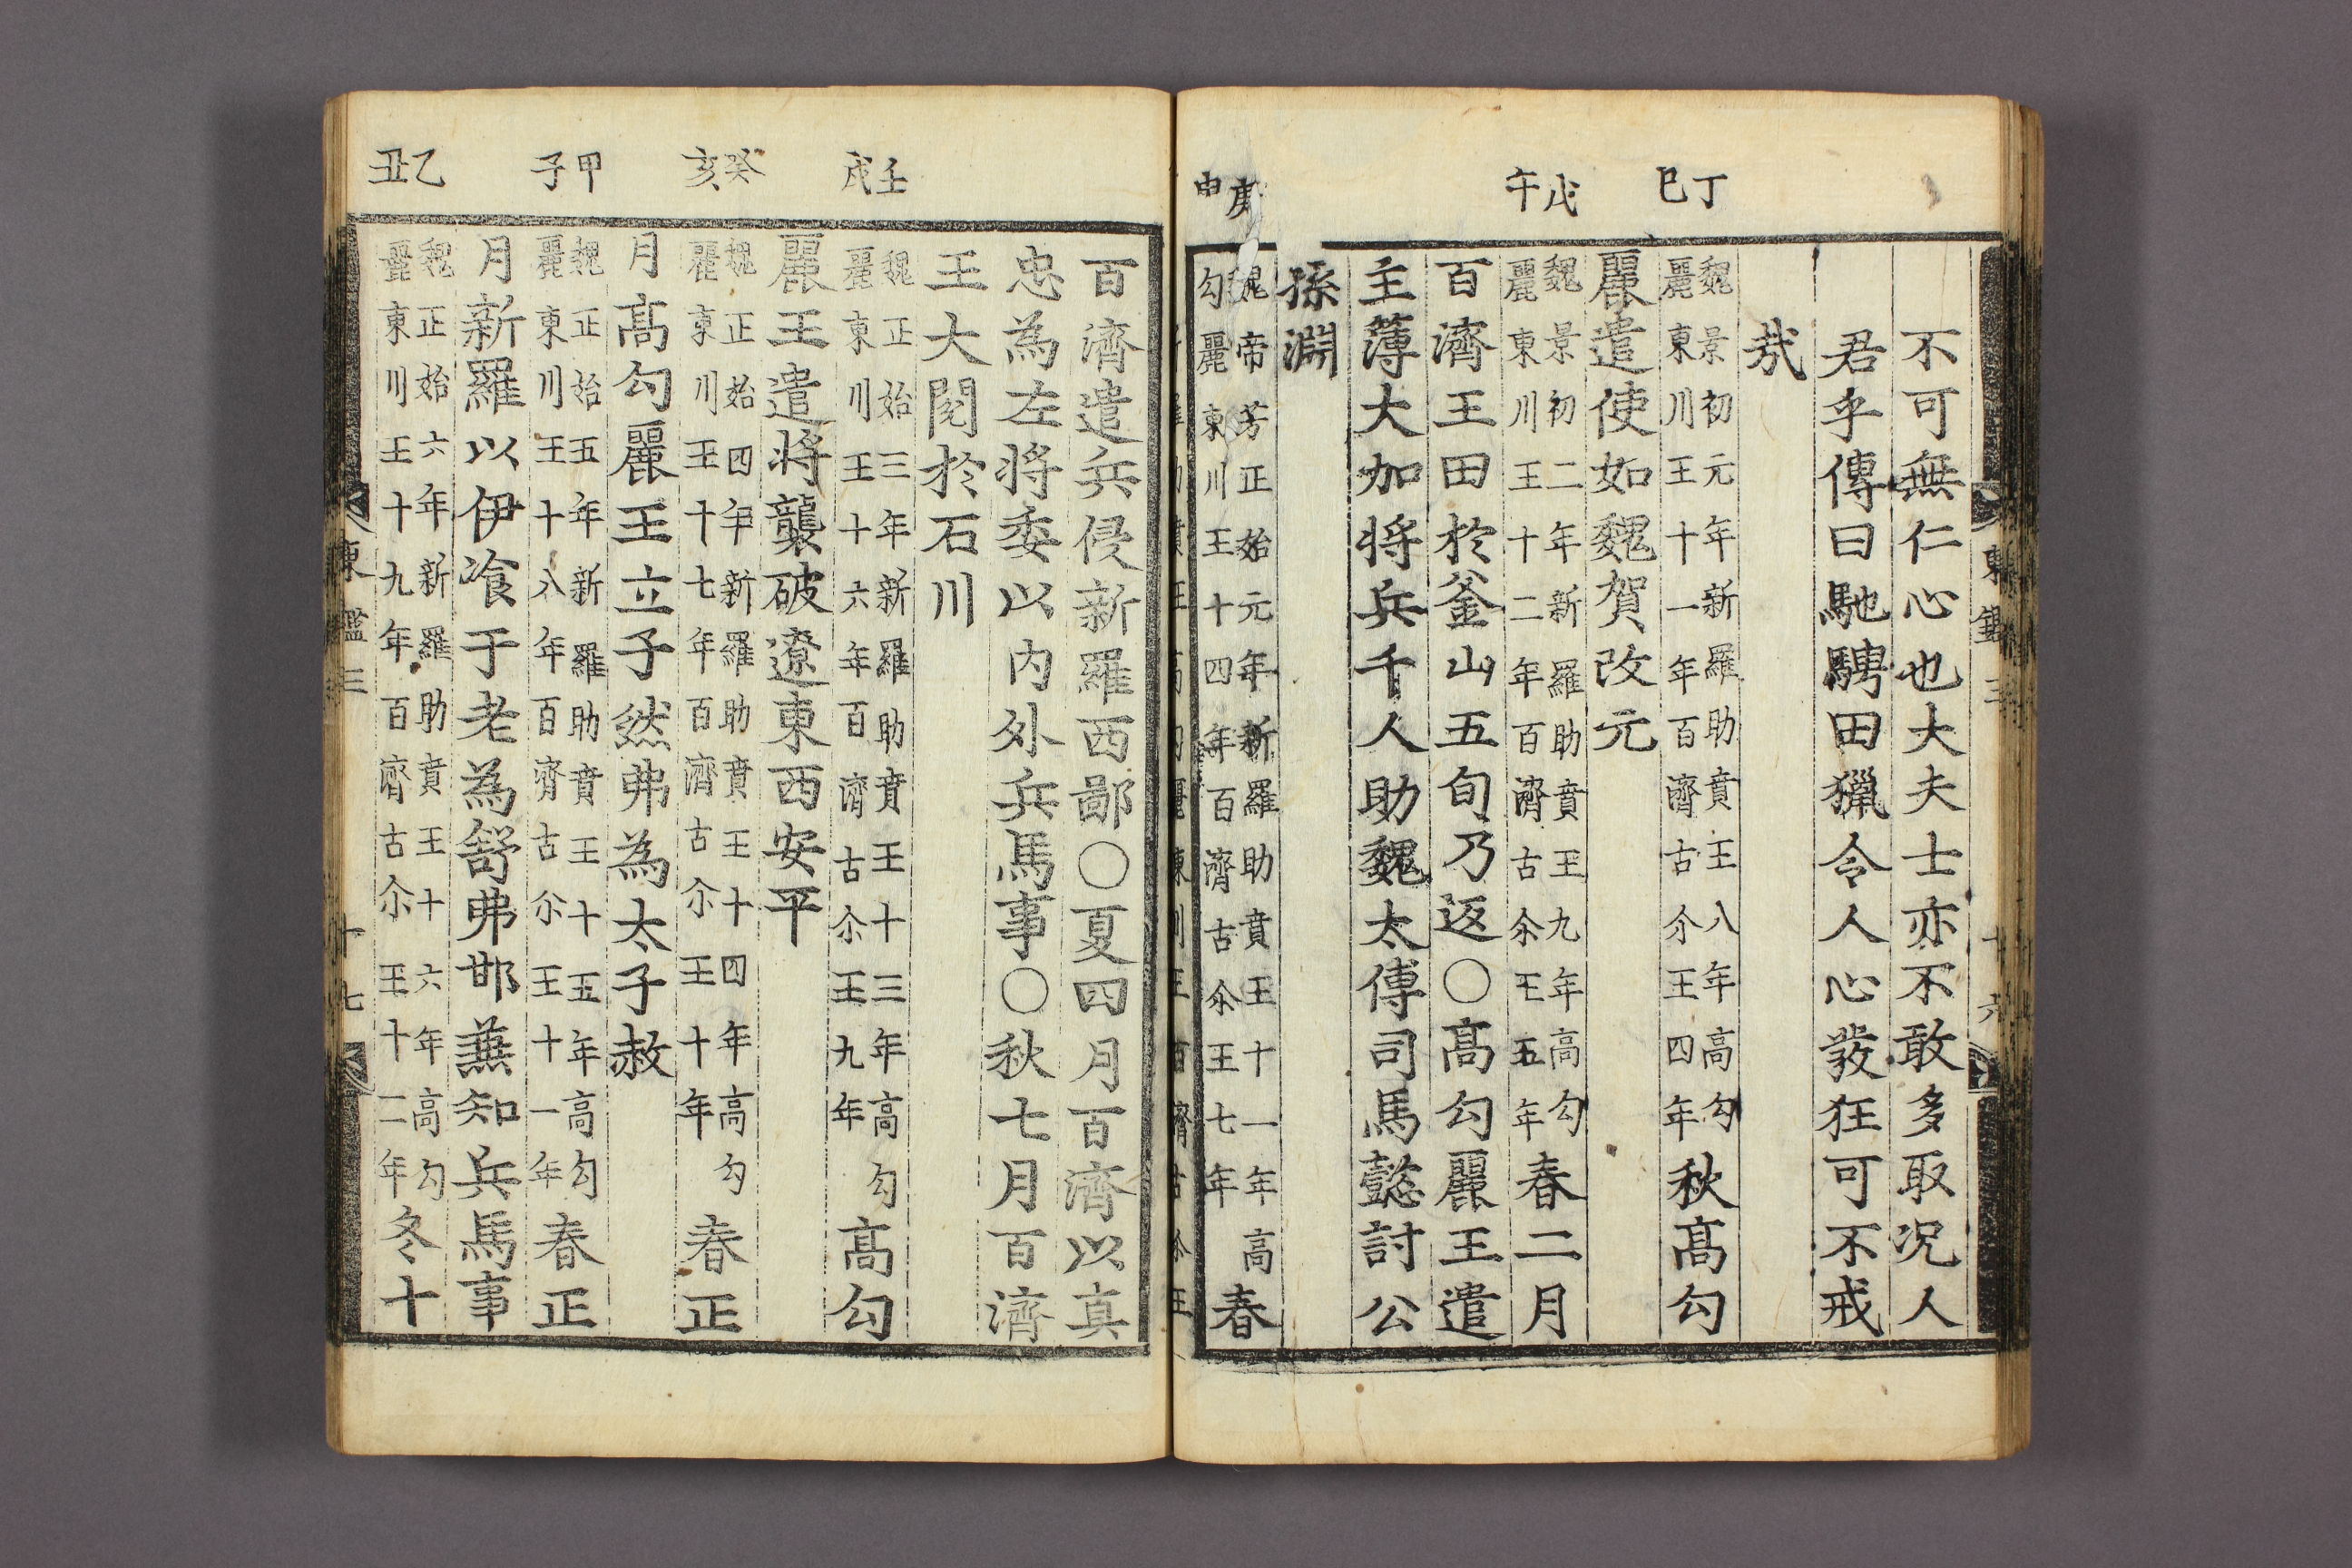 丁巳
戊午
庚申
不可無仁心也大夫士亦不敢多取况人
君乎傳曰馳騁田獵令人心發狂可不戒
㢤
魏景初元年新羅助賁王八年高勾
麗東川王十一年百濟古尒王四年秋高勾
麗遣使如魏賀改元
魏景初二年新羅助賁王九年高勾
麗東川王十二年百濟古尒王五年春二月
百濟王田於釜山五旬乃返○高勾麗王遣
主薄大加将兵千人助魏太傅司馬懿討公
孫淵
魏帝芳正始元年新羅助賁王十一年高
勾麗東川王十四年百濟古尒王七年春
東鑑三
十六
壬戌
癸亥
甲子
乙丑
百濟遣兵侵新羅西鄙○夏四月百濟以真
忠為左將委以内外兵馬事○秋七月百濟
王大閱於石川
魏正始三年新羅助賁王十三年高勾
麗東川王十六年百濟古尒王九年高勾
麗王遣將襲破遼東西安平
魏正始四年新羅助賁王十四年高勾
麗東川王十七年百濟古尒王十年春正
月高勾麗王立子然弗為太子赦
魏正始五年新羅助賁王十五年高勾
麗東川王十八年百濟古尒王十一年春正
月新羅以伊飡于老為舒弗邯兼知兵馬事
魏正始六年新羅助賁王十六年高勾
麗東川王十九年百濟古尒王十二年冬十
東鑑三
十七